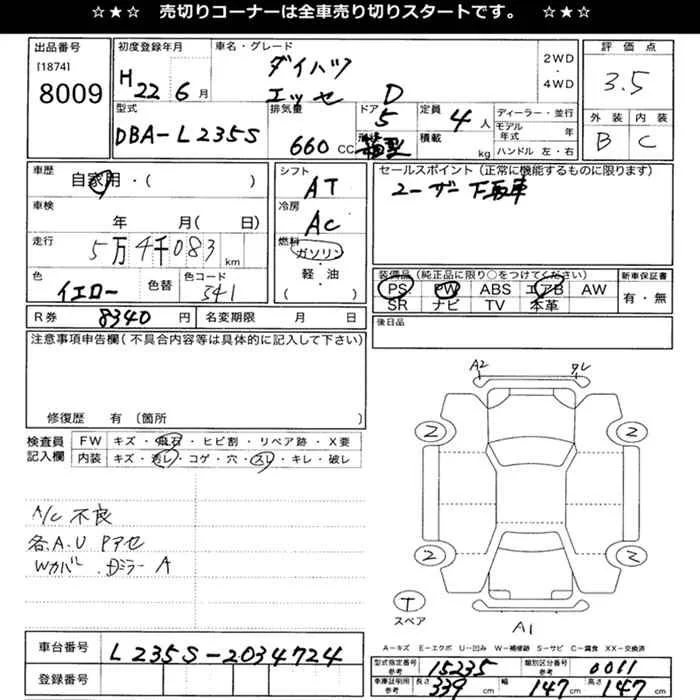 ☆★☆ 売切りコーナーは全車売り切りスタートです。 ☆★☆
出品番号 [1874] 8009
初度登録年月 H22年 6月
車名・グレード ダイハツ エッセ D
2WD・4WD
評価点 3.5
外装 B 内装 C
型式 DBA-L235S
排気量 660 CC
ドア 5
形状 箱型
定員 4人
積載 kg
ディーラー・並行
モデル年式 年
ハンドル 左・右
車歴 自家用・( )
車検 年 月( 日)
走行 5万4千083 km
色 イエロー 色替 色コード 341
シフト AT
冷房 AC
燃料 ガソリン・軽油 ( )
セールスポイント(正常に機能するものに限ります)
ユーザー下取車
装備品(純正品に限り○をつけてください)
PS PW ABS エアB AW
SR ナビ TV 本革
新車保証書 有・無
R券 8340 円 名変期限 月 日
後日品
注意事項申告欄(不具合内容等は具体的に記入して下さい)
修復歴 有 〔箇所 〕
検査員記入欄
FW キズ・飛石・ヒビ割・リペア跡・X要
内装 キズ・汚レ・コゲ・穴・スレ・キレ・破レ
A/C 不良
各.A.U Pアセ
Wカバー .Dミラー A
A2 ワレ
2 2
2 2
T スペア
A1
A=キズ E=エクボ U=凹み W=補修跡 S=サビ C=腐食 XX=交換済
車台番号 L235S-2034724
登録番号
型式指定番号 参考 15235 類別区分番号 参考 0011
車庫証明用 参考 長さ 339 cm 幅 147 cm 高さ 147 cm